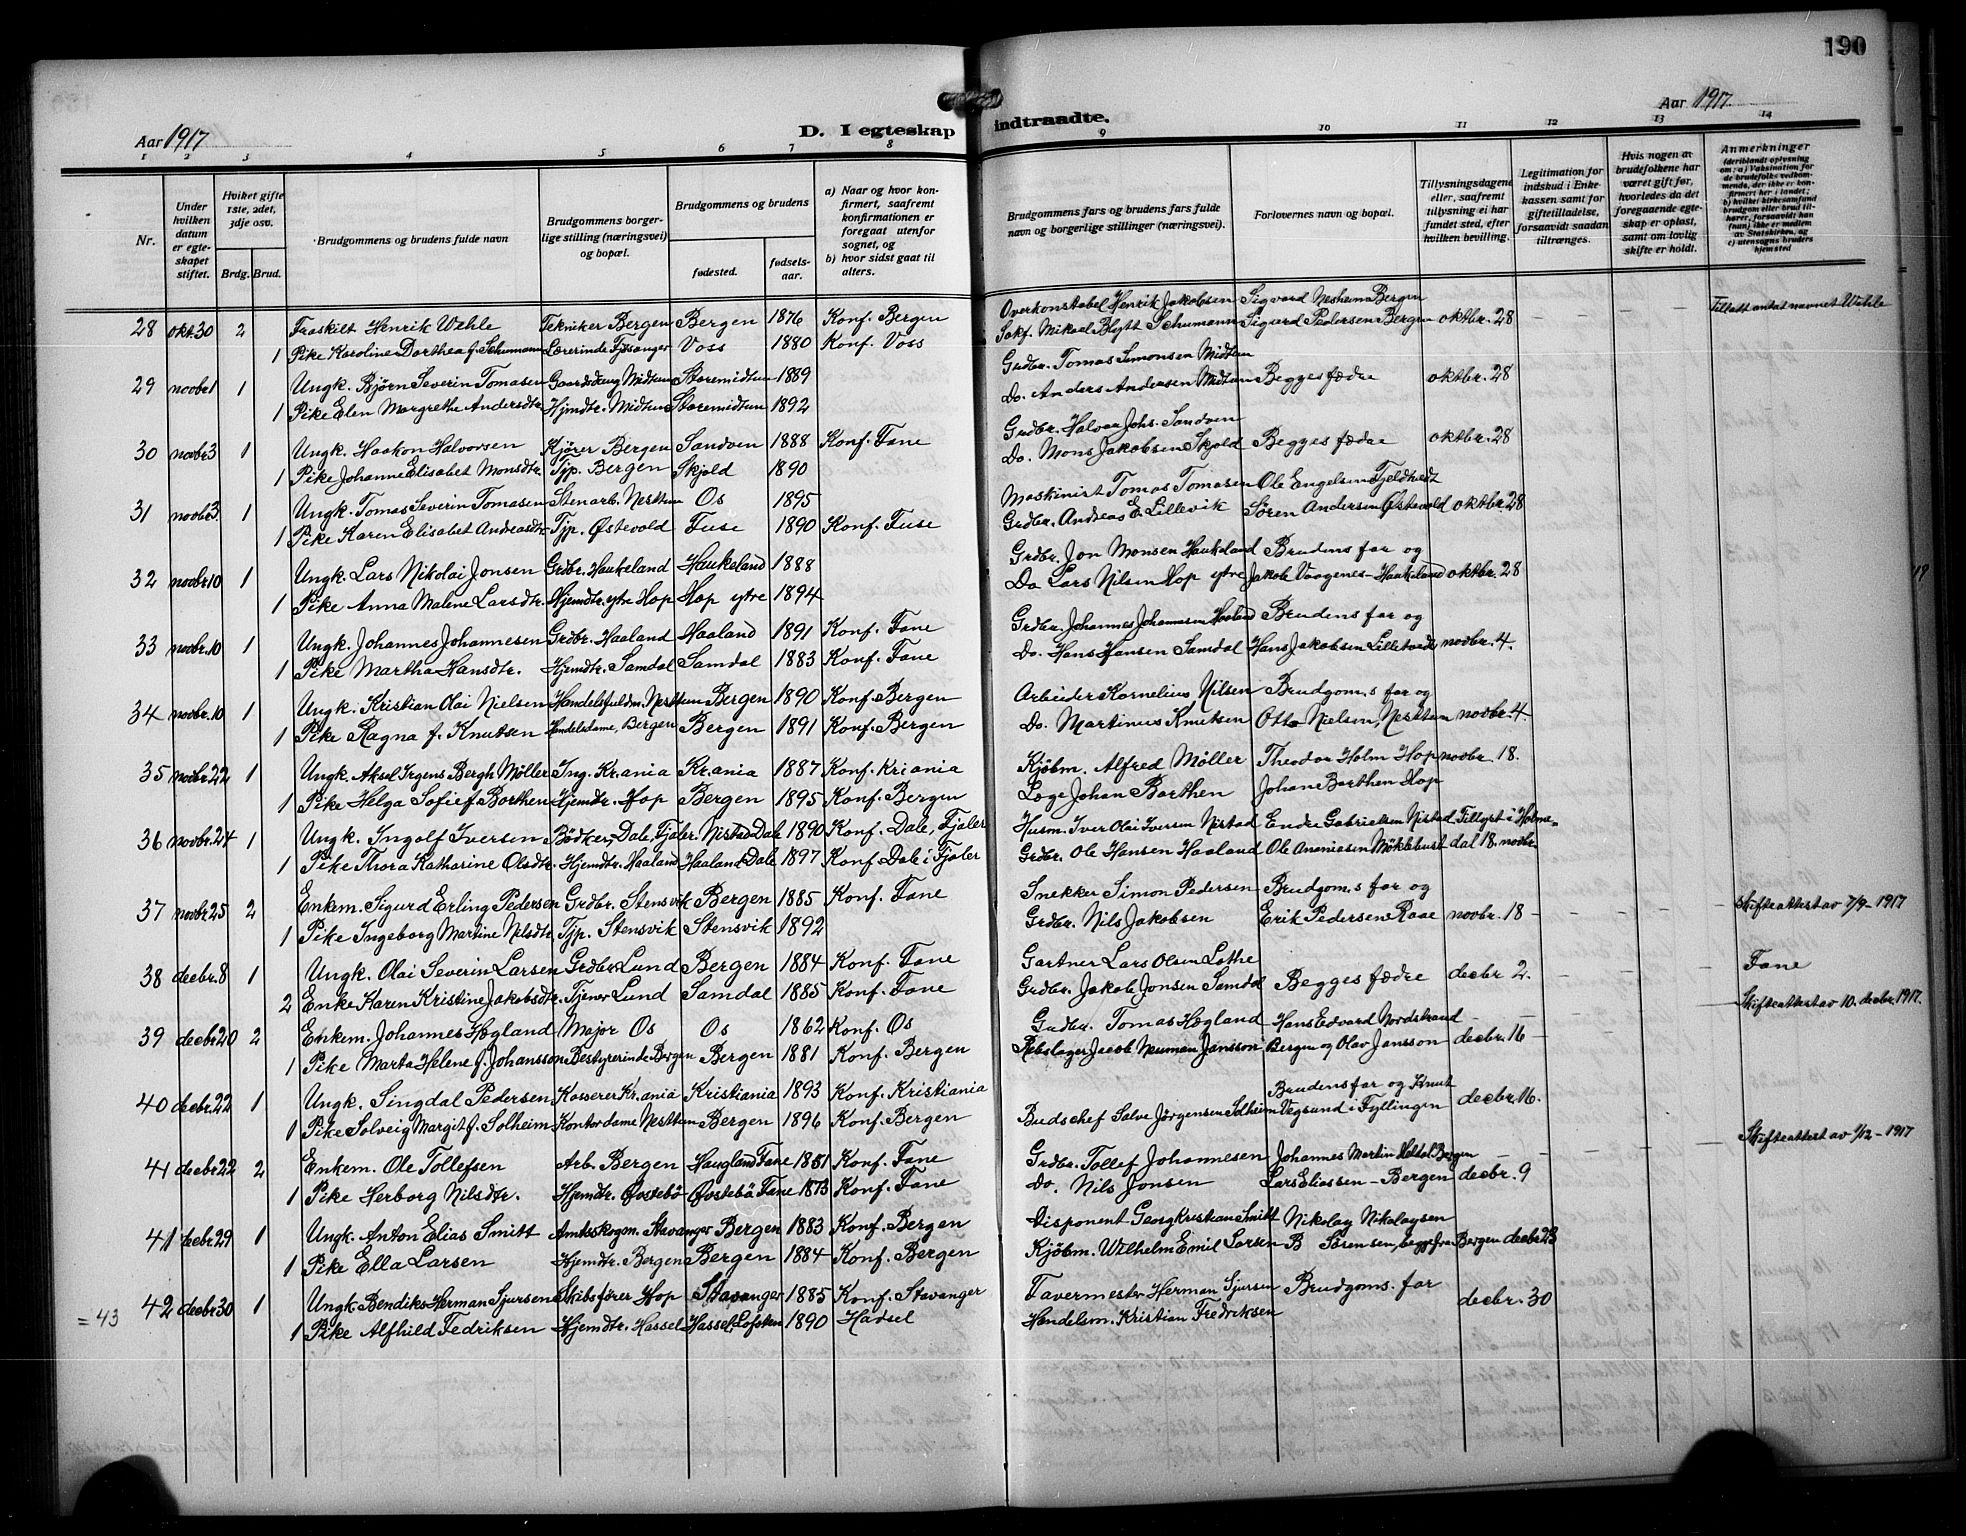 190
Aar 1917
D. I egteskap indtraadte.
Aar 1917
1 2 3 4 5 6 7 8 9 10 11 12 13 14
Nr.
Under hvilken datum er egteskapet stiftet.
Hviket gifte 1ste, 2det, 3dje osv.
Brdg. Brud.
Brudgommens og brudens fulde navn
Brudgommens borgerlige stilling (næringsvei) og bopæl.
Brudgommens og brudens
fødested.
fødselsaar.
a) Naar og hvor konfirmert, saafremt konfirmationen er foregaat utenfor sognet, og
b) hvor sidst gaat til alters.
Brudgommens fars og brudens fars fulde navn og borgerlige stillinger (næringsvei).
Forlovernes navn og bopæl.
Tillysningsdagene eller, saafremt tillysning ei har fundet sted, efter hvilken bevilling.
Legitimation for indskud i Enkekassen samt for giftetilladelse, forsaavidt saadan tiltrænges.
Hvis nogen av brudefolkene har været gift før, hvorledes da det foregaaende egteskap er opløst, samt om lovlig skifte er holdt.
Anmerkninger (deriblandt oplysning om: a) Vaksination for de brudefolks vedkommende, der ikke er konfirmert her i landet; b) hvilket kirkesamfund brudgom eller brud tilhører, forsaavidt han (hun) ikke er medlem av Statskirken, og c) utensogns bruders hjemsted
28 okt. 30 2 Fraskilt Henrik Wehle Tekniker Bergen Bergen 1876 Konf. Bergen Overkonstabel Henrik Jakobsen Sigvard Nesheim Bergen Tillatt antat navnet Wehle
1 Pike Karoline Dorthea f. Schumann Lærerinde Fjøsanger Voss 1880 Konf. Voss Sakf. Mikael Blytt Schumann Sigurd Pedersen Bergen oktbr. 28
29 novbr 1 1 Ungk. Bjørn Severin Tomasen Gaardsdreng Midtun Storemidtun 1889 Grdbr. Tomas Simonsen Midtun
1 Pike Elen Margrethe Andersdtr. Hjmdtr. Midtun Storemidtun 1892 Do. Anders Andersen Midtun Begges fædre oktbr. 28
30 novbr 3 1 Ungk. Haakon Halvorsen Kjører Bergen Sandven 1888 Konf. Fane Grdbr. Halvor Johs. Sandven
1 Pike Johanne Elisabet Monsdtr. Tjp. Bergen Skjold 1890 Do. Mons Jakobsen Skjold Begges fædre oktbr. 28
31 novbr 3. 1 Ungk. Tomas Severin Tomasen Stenarb. Nesttun Os 1895 Maskinist Tomas Tomasen Ole Engelsen Fjeldtvedt
1 Pike Karen Elisabet Andreasdtr. Tjp. Østevold Fuse 1890 Konf. Fuse Grdbr. Andreas E. Lillevik Søren Andersen Østevold oktbr. 28
32 novbr 10 1 Ungk. Lars Nikolai Jonsen Grdbr. Haukeland Haukeland 1888 Grdbr. Jon Monsen Haukeland Brudens far og
1 Pike Anna Malene Larsdtr. Hjemdtr. ytre Hop Hop ytre 1894 Do Lars Nilsen Hop ytre Jakob Vaagenes - Haukeland oktbr. 28
33 novbr. 10 1 Ungk. Johannes Johannesen Grdbr. Haaland Haaland 1891 Konf. Fane Grdbr. Johannes Johannesen Haaland Brudens far og
1 Pike Martha Hansdtr. Hjemdtr. Samdal Samdal 1883 Konf. Fane Do. Hans Hansen Samdal Hans Jakobsen Lilletvedt novbr. 4.
34 novbr. 10 1 Ungk. Kristian Olai Nielsen Handelsfuldm. Nesttun Bergen 1890 Konf. Bergen Arbeider Kornelius Nilsen Brudgom.s far og
1 Pike Ragna f. Knutsen Handelsdame, Bergen Bergen 1891 Konf. Bergen Do. Martinus Knutsen Otto Nielsen, Nesttun novbr. 4
35 novbr 22 1 Ungk. Aksel Irgens Bergh Møller Ing. Kr.ania Kr.ania 1887 Konf. Kriania Kjøbm. Alfred Møller Theodor Holm Hop novbr 18.
1 Pike Helga Sofie f. Borthen Hjemdtr. Hop Bergen 1895 Konf. Bergen Læge Johan Borthen Johane Borthen Hop
36 novbr. 24 1 Ungk. Ingolf Iversen Bødker, Dale, Fjaler. Nistad Dale 1890 Konf. Dale, Fjaler Husm. Iver Olai Iversen Nistad Endre Gabrielsen Nistad Tillyst i Holme=
1 Pike Thora Katharine Olsdtr. Hjemdtr. Haaland Haaland Dale 1897 Konf. Dale i Fjaler Grdbr. Ole Hansen Haaland Ole Ananiasen Møklebust dal 18. novbr.
37 novbr 25 2 Enkem. Sigurd Erling Pedersen Grdbr. Stensvik Bergen 1885 Konf. Fane Snekker Simon Pedersen Brudgom.s far og Skifteattest av 7/9 - 1917
1 Pike Ingeborg Martine Nilsdtr. Tjp. Stensvik Stensvik 1892 Grdbr. Nils Jakobsen Erik Pedersen Raae novbr. 18
38 decbr. 8 1 Ungk. Olai Severin Larsen Grdbr Lund Bergen 1884 Konf. Fane Gartner Lars Olsen Lothe Fane
2 Enke Karen Kristine Jakobsdtr. Tjener Lund Samdal 1885 Konf. Fane Grdbr. Jakob Jonsen Samdal Begges fædre decbr 2. Skifteattest av 10. decbr. 1917.
39 decbr 20 2 Enkem. Johannes Hægland Major Os Os 1862 Konf. Os Grdbr. Tomas Hægland Hans Edvard Nordstrand
1 Pike Marta Helene f. Johansson Bestyrerinde Bergen Bergen 1881 Konf. Bergen Rebslager Jacob Neuman Jansson Bergen og Olav Jansson decbr. 16
40 decbr. 22 1 Ungk. Singdal Pedersen Kasserer Kr.ania Kristiania 1893 Konf. Kristiania Brudens far og Knut
1 Pike Solveig Margit f. Solheim Kontordame Nesttun Bergen 1896 Konf. Bergen Budschef Salve Jørgensen Solheim Vegsund i Fyllingen decbr. 16.
41 decbr 22 2 Enkem. Ole Tollefsen Arb. Bergen Haugland Fane 1851 Konf. Fane Grdbr. Tollef Johannesen Johannes Martin Heldal Bergen Skifteattest av 1/12 - 1917
1 Pike Herborg Nilsdtr. Hjemdtr. Øvstebø Øvstebø Fane 1873 Konf. Fane Do. Nils Jonsen Lars Eliassen - Bergen decbr. 9
41 decbr 29 1 Ungk. Anton Elias Smitt Amtsskogm. Stavanger Bergen 1883 Konf. Bergen Disponent Georg Kristian Smitt Nikolay Nikolaysen
1 Pike Ella Larsen Hjemdtr. Bergen Bergen 1884 Konf. Bergen Kjøbm. Wilhelm Emil Larsen B Sørensen, begge fra Bergen decbr 23
= 43 42 decbr 30 1 Ungk. Bendiks Herman Sjursen Skibsfører Hop Stavanger 1885 Konf. Stavanger Favermester Herman Sjursen Brudgoms. far
1 Pike Alfhild Fedriksen Hjemdtr. Hassel Hassel, Lofoten 1890 Hadsel Handelsm. Kristian Fredriksen decbr. 30